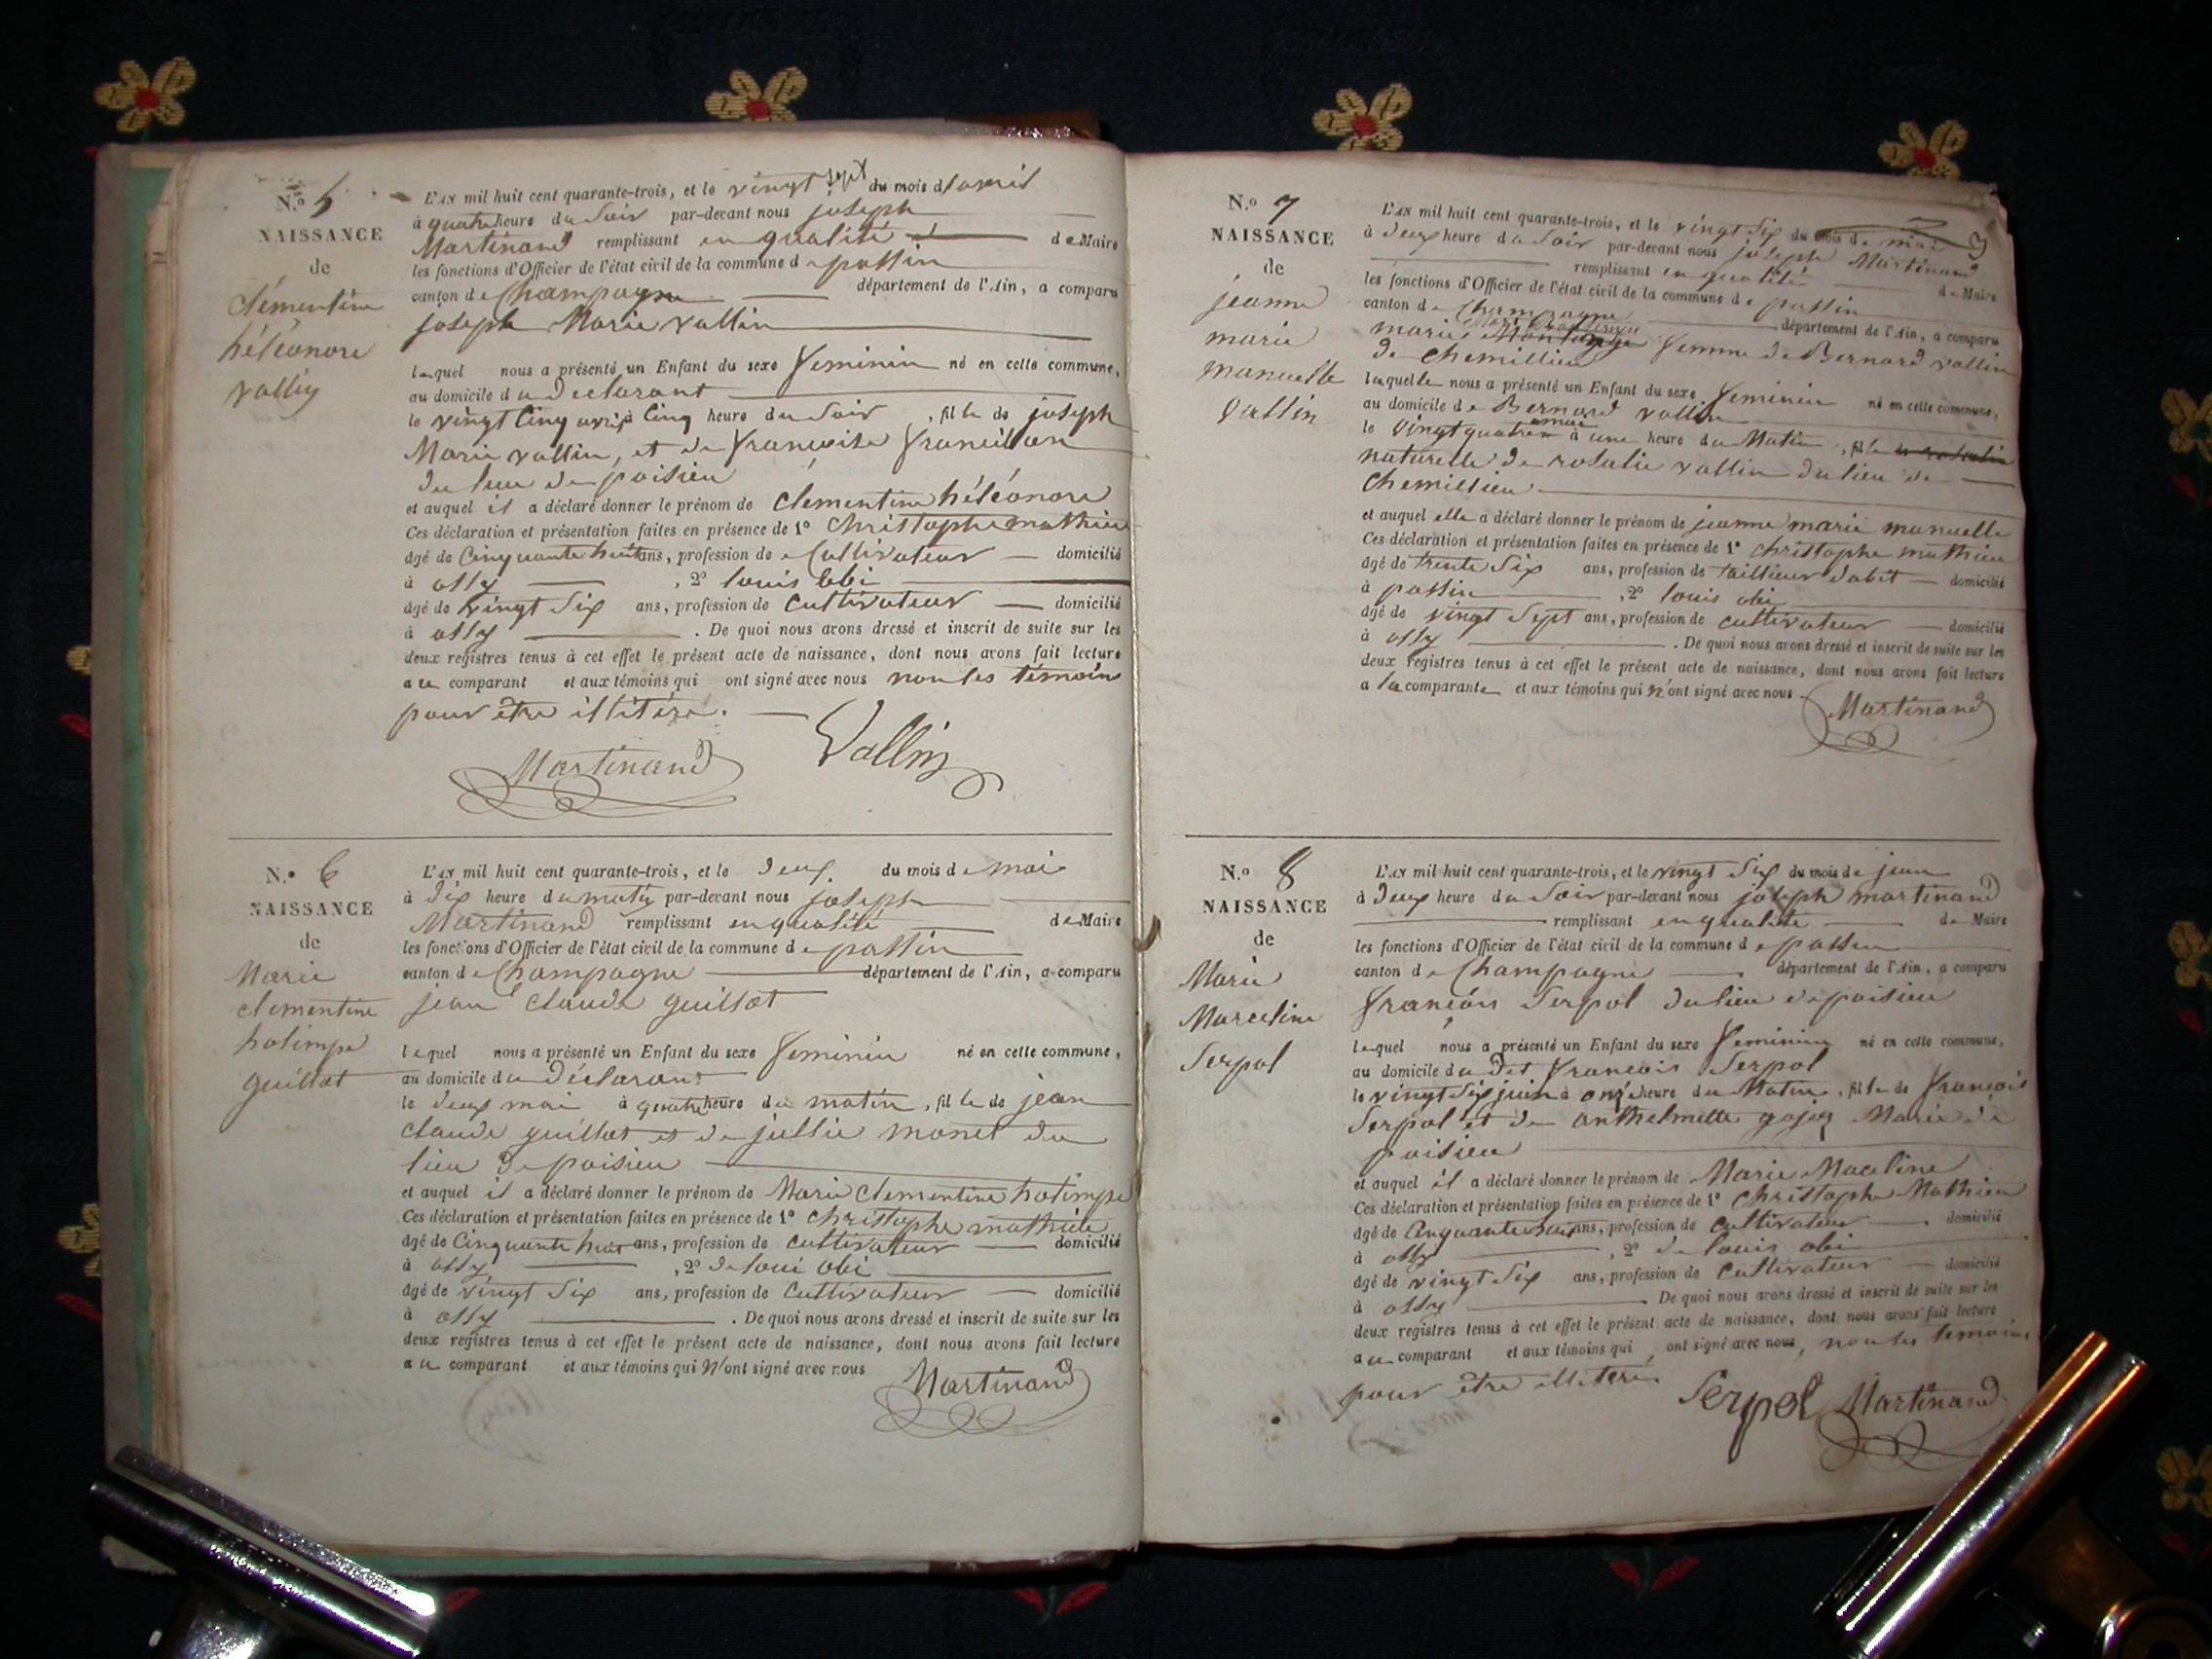 N.o 5
NAISSANCE
de
clémentine
héléonore
vallin
L'AN mil huit cent quarante-trois, et le vingt sept du mois d'avril
à quatre heure du soir par-devant nous joseph
Martinand remplissant en qualité de Maire
les fonctions d'Officier de l'état civil de la commune de passin
canton de Champagne département de l'Ain, a comparu
joseph Marie vallin
lequel nous a présenté un Enfant du sexe feminin né en cette commune,
au domicile du declarant
le vingt cinq avril à cinq heure du soir, fille de joseph
Marie vallin, et de françoise francillon
du lieu de poisieu
et auquel il a déclaré donner le prénom de clementine héléonore
Ces déclaration et présentation faites en présence de 1º christophe mathieu
âgé de cinquante huit ans, profession de cultivateur domicilié
à ossy, 2º louis obi
âgé de vingt six ans, profession de cultivateur domicilié
à ossy. De quoi nous avons dressé et inscrit de suite sur les
deux registres tenus à cet effet le présent acte de naissance, dont nous avons fait lecture
au comparant et aux témoins qui ont signé avec nous non les témoins
pour être illitéré.
Martinand Vallin
N.o 6
NAISSANCE
de
Marie
clementine
holimpe
guillot
L'AN mil huit cent quarante-trois, et le deux du mois de mai
à dix heure du matin par-devant nous joseph
Martinand remplissant en qualité de Maire
les fonctions d'Officier de l'état civil de la commune de passin
canton de Champagne département de l'Ain, a comparu
jean claude guillot
lequel nous a présenté un Enfant du sexe feminin né en cette commune,
au domicile du déclarant
le deux mai à quatre heure du matin, fille de jean
claude guillot et de jullie monet du
lieu de poisieu
et auquel il a déclaré donner le prénom de Marie clementine holimpe
Ces déclaration et présentation faites en présence de 1º christophe mathieu
âgé de cinquante huit ans, profession de cultivateur domicilié
à ossy, 2º de loui obi
âgé de vingt six ans, profession de cultivateur domicilié
à ossy. De quoi nous avons dressé et inscrit de suite sur les
deux registres tenus à cet effet le présent acte de naissance, dont nous avons fait lecture
au comparant et aux témoins qui n'ont signé avec nous
Martinand
3
N.o 7
NAISSANCE
de
jeanne
marie
manuelle
vallin
L'AN mil huit cent quarante-trois, et le vingt six du mois de mai
à deux heure du soir par-devant nous joseph Martinand
remplissant en qualité de Maire
les fonctions d'Officier de l'état civil de la commune de passin
canton de Champagne département de l'Ain, a comparu
marie femme de Bernard vallin
de chemillieu
laquelle nous a présenté un Enfant du sexe feminin né en cette commune,
au domicile de Bernard vallin
le vingt quatre mai à une heure du Matin, fille de rosalie
naturelle de rosalie vallin du lieu de
chemillieu
et auquel elle a déclaré donner le prénom de jeanne marie manuelle
Ces déclaration et présentation faites en présence de 1º christophe mathieu
âgé de trente six ans, profession de taillieur dabit domicilié
à passin, 2º louis obi
âgé de vingt sept ans, profession de cultivateur domicilié
à ossy. De quoi nous avons dressé et inscrit de suite sur les
deux registres tenus à cet effet le présent acte de naissance, dont nous avons fait lecture
a la comparante et aux témoins qui n'ont signé avec nous
Martinand
N.o 8
NAISSANCE
de
Marie
Marceline
Serpol
L'AN mil huit cent quarante-trois, et le vingt six du mois de juin
à deux heure du soir par-devant nous joseph martinand
remplissant en qualité de Maire
les fonctions d'Officier de l'état civil de la commune de passin
canton de Champagne département de l'Ain, a comparu
françois Serpol du lieu de poisieu
lequel nous a présenté un Enfant du sexe feminin né en cette commune,
au domicile du dit françois Serpol
le vingt six juin à onze heure du Matin, fille de françois
Serpol et de anthelmette gojoz Marie de
poisieu
et auquel il a déclaré donner le prénom de Marie Maceline
Ces déclaration et présentation faites en présence de 1º Christophe Mathieu
âgé de cinquante huit ans, profession de cultivateur domicilié
à ossy, 2º de louis obi
âgé de vingt six ans, profession de cultivateur domicilié
à ossy De quoi nous avons dressé et inscrit de suite sur les
deux registres tenus à cet effet le présent acte de naissance, dont nous avons fait lecture
au comparant et aux témoins qui ont signé avec nous, non les temoins
pour être illiteré
Serpol Martinand